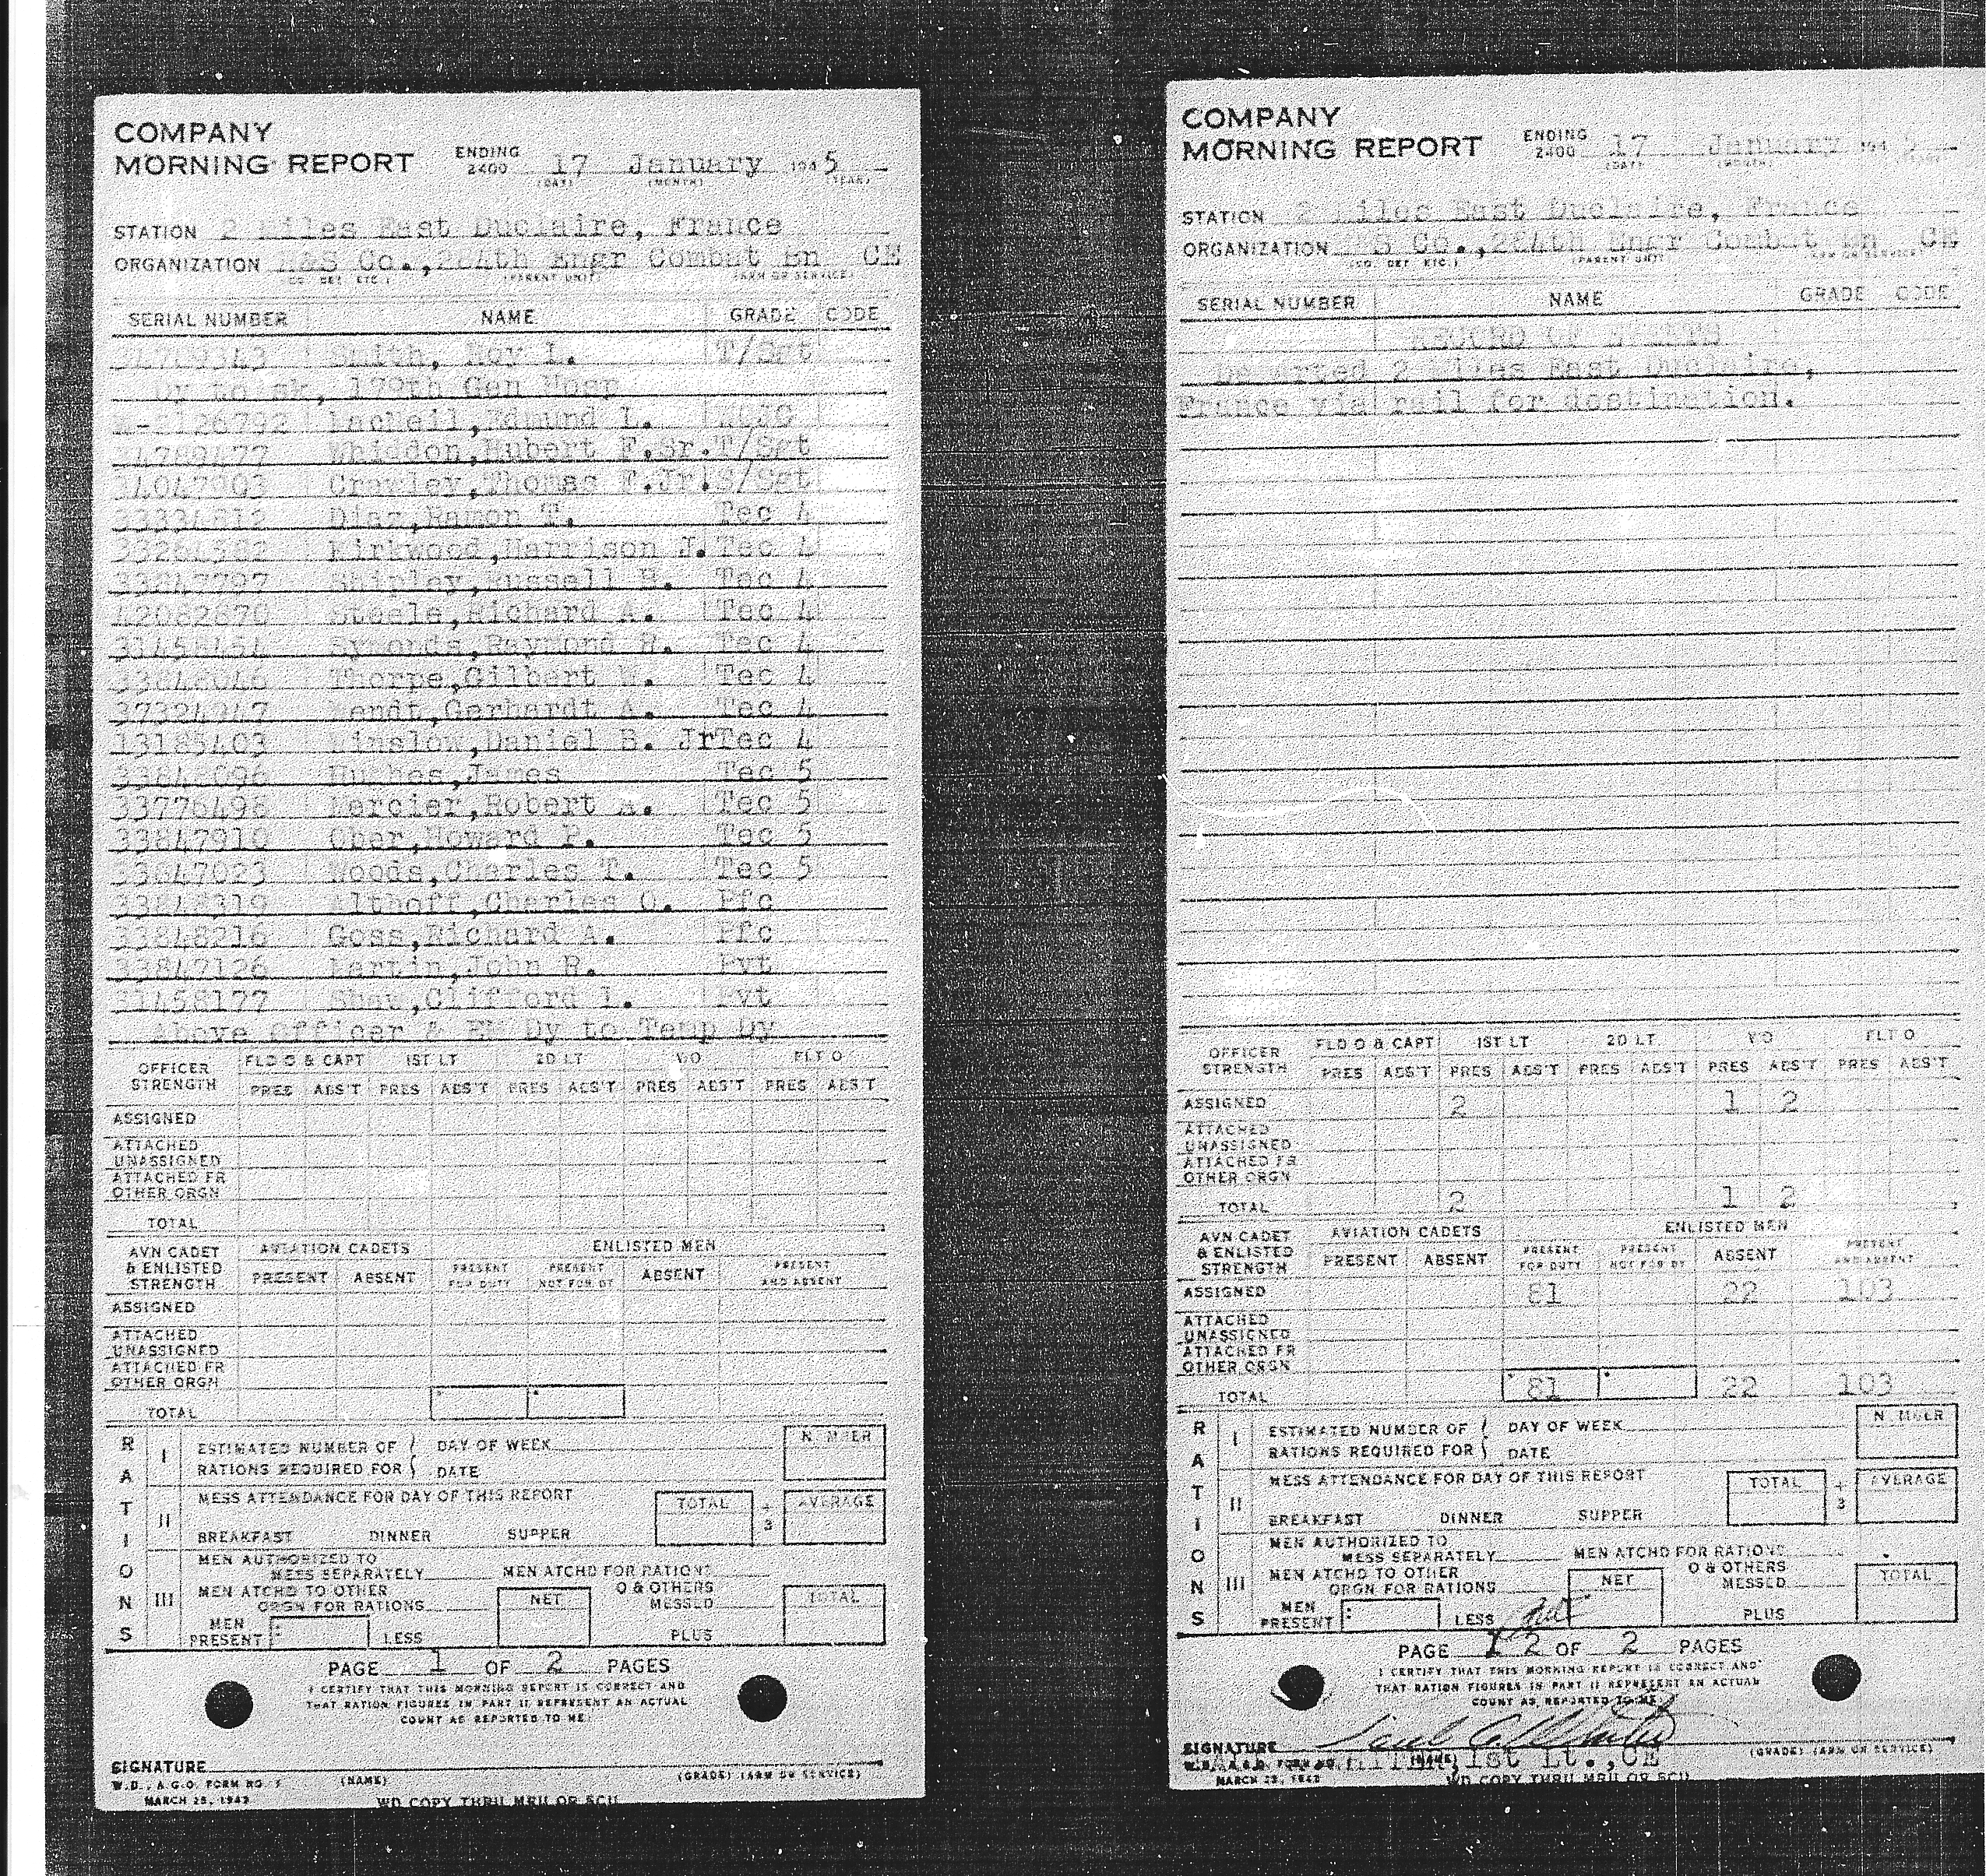 COMPANY
MORNING REPORT ENDING 2400 17 January 1945
(DAY) (MONTH) (YEAR)
STATION 2 Miles East Duclaire, France
ORGANIZATION H&S Co., 284th Engr Combat Bn CE
(CO. DET. ETC.) (PARENT UNIT) (ARM OR SERVICE)
SERIAL NUMBER NAME GRADE CODE
34789343 Smith, Roy L. T/Sgt
Dy to sk, 179th Gen Hosp
W-2126792 Edmund L. WOJG
34789477 Whiddon,Hubert F.Sr.T/Sgt
34047903 Crawley,Thomas F.Jr.S/Sgt
33334812 Diaz,Ramon T. Tec 4
Kirkwood,Harrison J. Tec 4
33847797 Shipley,Russell H. Tec 4
42062670 Steele,Richard A. Tec 4
31458454 Symonds,Raymond R. Tec 4
33848046 Thorpe,Gilbert W. Tec 4
37324947 Wendt,Gerhardt A. Tec 4
13185403 Winslow,Daniel B. Jr Tec 4
33848096 Hughes,James Tec 5
33776498 Mercier,Robert A. Tec 5
33847910 Ober,Howard P. Tec 5
33847023 Woods,Charles T. Tec 5
33848319 Althoff,Charles O. Pfc
33848216 Goss,Richard A. Pfc
33847126 Martin,John R. Pvt
31458177 Shaw,Clifford L. Pvt
Above Officer & EM Dy to Temp Dy
OFFICER STRENGTH FLD O & CAPT 1ST LT 2D LT WO FLT O
PRES ABS'T PRES ABS'T PRES ABS'T PRES ABS'T PRES ABS'T
ASSIGNED
ATTACHED
UNASSIGNED
ATTACHED FR
OTHER ORGN
TOTAL
AVN CADET & ENLISTED STRENGTH AVIATION CADETS ENLISTED MEN
PRESENT ABSENT PRESENT FOR DUTY PRESENT NOT FOR DY ABSENT PRESENT AND ABSENT
ASSIGNED
ATTACHED
UNASSIGNED
ATTACHED FR
OTHER ORGN
TOTAL
RATIONS
I ESTIMATED NUMBER OF RATIONS REQUIRED FOR DAY OF WEEK DATE NUMBER
II MESS ATTENDANCE FOR DAY OF THIS REPORT TOTAL ÷ 3 AVERAGE
BREAKFAST DINNER SUPPER
III MEN AUTHORIZED TO MESS SEPARATELY MEN ATCHD FOR RATIONS
MEN ATCHD TO OTHER ORGN FOR RATIONS NET O & OTHERS MESSED TOTAL
MEN PRESENT LESS PLUS
PAGE 1 OF 2 PAGES
I CERTIFY THAT THIS MORNING REPORT IS CORRECT AND
THAT RATION FIGURES IN PART II REPRESENT AN ACTUAL
COUNT AS REPORTED TO ME:
SIGNATURE
W.D., A.G.O. FORM NO. 1 (NAME) (GRADE) (ARM OR SERVICE)
MARCH 25, 1943 WD COPY THRU MRU OR SCU
COMPANY
MORNING REPORT ENDING 2400 17 January 1945
(DAY) (MONTH) (YEAR)
STATION 2 Miles East Duclaire, France
ORGANIZATION H&S Co.,284th Engr Combat Bn CE
(CO. DET. ETC.) (PARENT UNIT) (ARM OR SERVICE)
SERIAL NUMBER NAME GRADE CODE
RECORD OF EVENTS
Departed 2 Miles East Duclaire,
France via rail for destination.
OFFICER STRENGTH FLD O & CAPT 1ST LT 2D LT WO FLT O
PRES ABS'T PRES ABS'T PRES ABS'T PRES ABS'T PRES ABS'T
ASSIGNED 2 1 2
ATTACHED
UNASSIGNED
ATTACHED FR
OTHER ORGN
TOTAL 2 1 2
AVN CADET & ENLISTED STRENGTH AVIATION CADETS ENLISTED MEN
PRESENT ABSENT PRESENT FOR DUTY PRESENT NOT FOR DY ABSENT PRESENT AND ABSENT
ASSIGNED 81 22 103
ATTACHED
UNASSIGNED
ATTACHED FR
OTHER ORGN
TOTAL 81 22 103
RATIONS
I ESTIMATED NUMBER OF RATIONS REQUIRED FOR DAY OF WEEK DATE NUMBER
II MESS ATTENDANCE FOR DAY OF THIS REPORT TOTAL ÷ 3 AVERAGE
BREAKFAST DINNER SUPPER
III MEN AUTHORIZED TO MESS SEPARATELY MEN ATCHD FOR RATIONS
MEN ATCHD TO OTHER ORGN FOR RATIONS NET O & OTHERS MESSED TOTAL
MEN PRESENT LESS PLUS
PAGE 2 OF 2 PAGES
I CERTIFY THAT THIS MORNING REPORT IS CORRECT AND
THAT RATION FIGURES IN PART II REPRESENT AN ACTUAL
COUNT AS REPORTED TO ME:
SIGNATURE
1st Lt.,CE
W.D., A.G.O. FORM NO. (NAME) (GRADE) (ARM OR SERVICE)
MARCH 25, 1943 WD COPY THRU MRU OR SCU